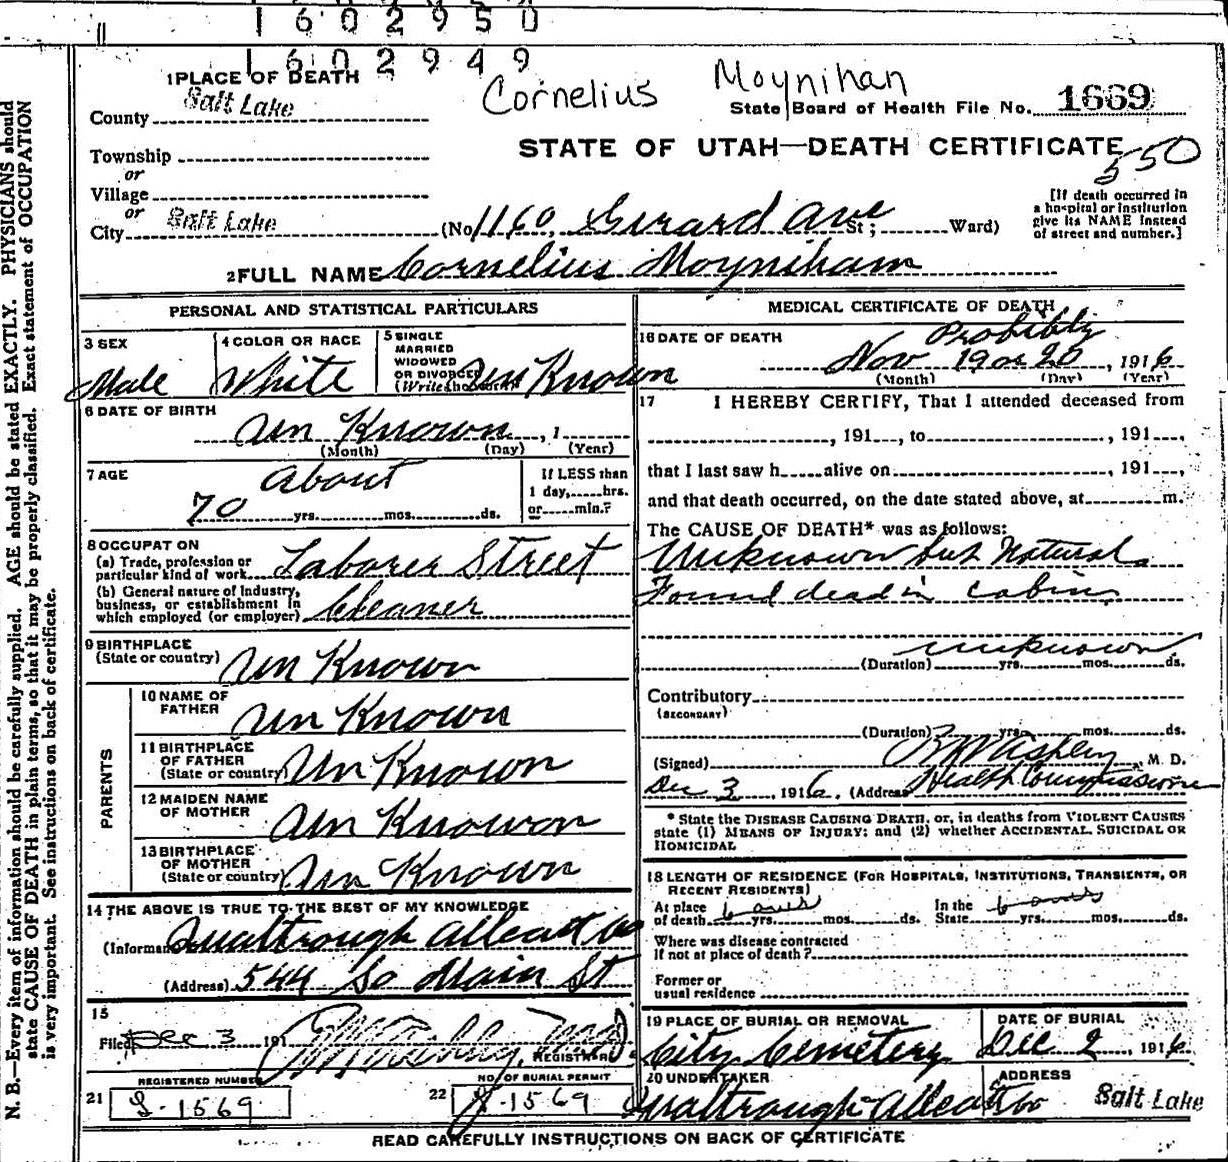 1602950
1602949
Cornelius Moynihan
1 PLACE OF DEATH
County Salt Lake
State Board of Health File No. 1669
Township
or
Village
or
City Salt Lake
STATE OF UTAH—DEATH CERTIFICATE
550
(No 1160. Girard Ave St; Ward)
[If death occurred in
a hospital or institution
give its NAME instead
of street and number.]
2 FULL NAME Cornelius Moyniham
PERSONAL AND STATISTICAL PARTICULARS
3 SEX
Male
4 COLOR OR RACE
White
5 SINGLE
MARRIED
WIDOWED
OR DIVORCED
(Write the word) Un Known
6 DATE OF BIRTH
Un Known, 1
(Month) (Day) (Year)
7 AGE
About
70 yrs. mos. ds.
If LESS than
1 day, hrs.
or min.?
8 OCCUPAT ON
(a) Trade, profession or
particular kind of work Laborer Street
(b) General nature of Industry,
business, or establishment in
which employed (or employer) Cleaner
9 BIRTHPLACE
(State or country) Un Known
PARENTS
10 NAME OF
FATHER Un Known
11 BIRTHPLACE
OF FATHER
(State or country) Un Known
12 MAIDEN NAME
OF MOTHER Un Known
13 BIRTHPLACE
OF MOTHER
(State or country) Un Known
14 THE ABOVE IS TRUE TO THE BEST OF MY KNOWLEDGE
(Informant)
(Address) 544 So Main St
15
Filed Dec 3 191
REGISTRAR
REGISTERED NUMBER
21 S-1569
NO. OF BURIAL PERMIT
22 S-1569
MEDICAL CERTIFICATE OF DEATH
16 DATE OF DEATH
Probibly
Nov 19 or 20, 1916
(Month) (Day) (Year)
17 I HEREBY CERTIFY, That I attended deceased from
, 191 , to , 191 ,
that I last saw h alive on , 191 ,
and that death occurred, on the date stated above, at m.
The CAUSE OF DEATH* was as follows:
Unknown but Natural.
Found dead in cabin,
unknown
(Duration) yrs. mos. ds.
Contributory
(SECONDARY)
(Duration) yrs. mos. ds.
(Signed) M. D.
Dec 3, 1916. (Address Health Commissioner
* State the DISEASE CAUSING DEATH, or, in deaths from VIOLENT CAUSES
state (1) MEANS OF INJURY; and (2) whether ACCIDENTAL, SUICIDAL OR
HOMICIDAL
18 LENGTH OF RESIDENCE (FOR HOSPITALS, INSTITUTIONS, TRANSIENTS, OR
RECENT RESIDENTS)
At place
of death yrs. mos. ds.
In the
State yrs. mos. ds.
Where was disease contracted
if not at place of death?
Former or
usual residence
19 PLACE OF BURIAL OR REMOVAL
City Cemetery
DATE OF BURIAL
Dec 2, 1916
20 UNDERTAKER
ADDRESS
Salt Lake
READ CAREFULLY INSTRUCTIONS ON BACK OF CERTIFICATE
N. B.—Every item of information should be carefully supplied. AGE should be stated EXACTLY. PHYSICIANS should
state CAUSE OF DEATH in plain terms, so that it may be properly classified. Exact statement of OCCUPATION
is very important. See instructions on back of certificate.